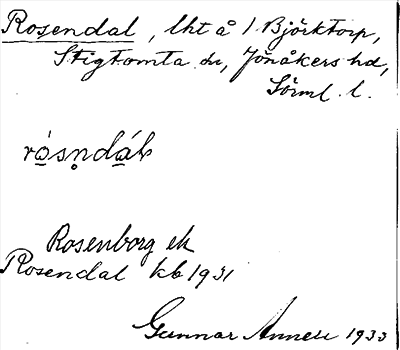 Rosendal, lht å 1 Björktorp,
Stigtomta sn, Jönåkers hd,
Sörml. l.
rósndál
Rosenborg ek
Rosendal kb 1931
Gunnar Annell 1933